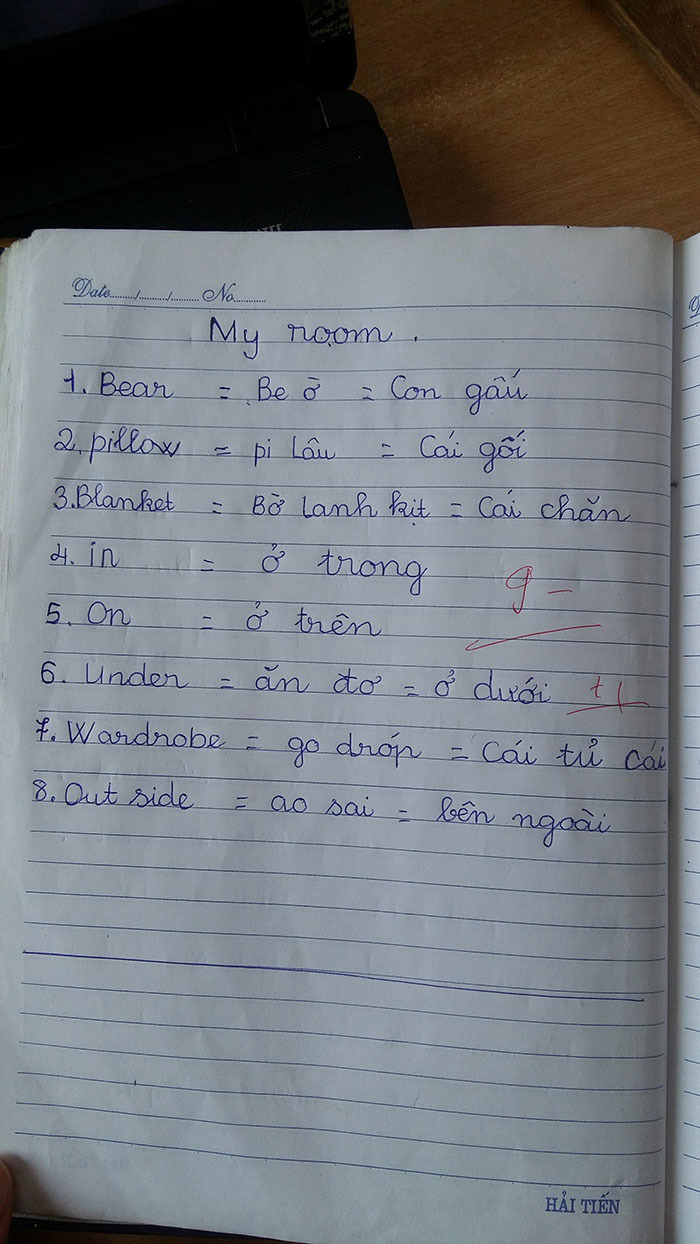 Date....../....../...... No..........
My room.
1. Bear = Be ờ = Con gấu
2. pillow = pi lâu = Cái gối
3. Blanket = Bờ lanh kịt = Cái chăn
4. in = ở trong
9-
5. On = ở trên
6. Under = ăn đơ = ở dưới +1
7. Wardrobe = go dróp = Cái tủ cái
8. Out side = ao sai = bên ngoài
HẢI TIẾN